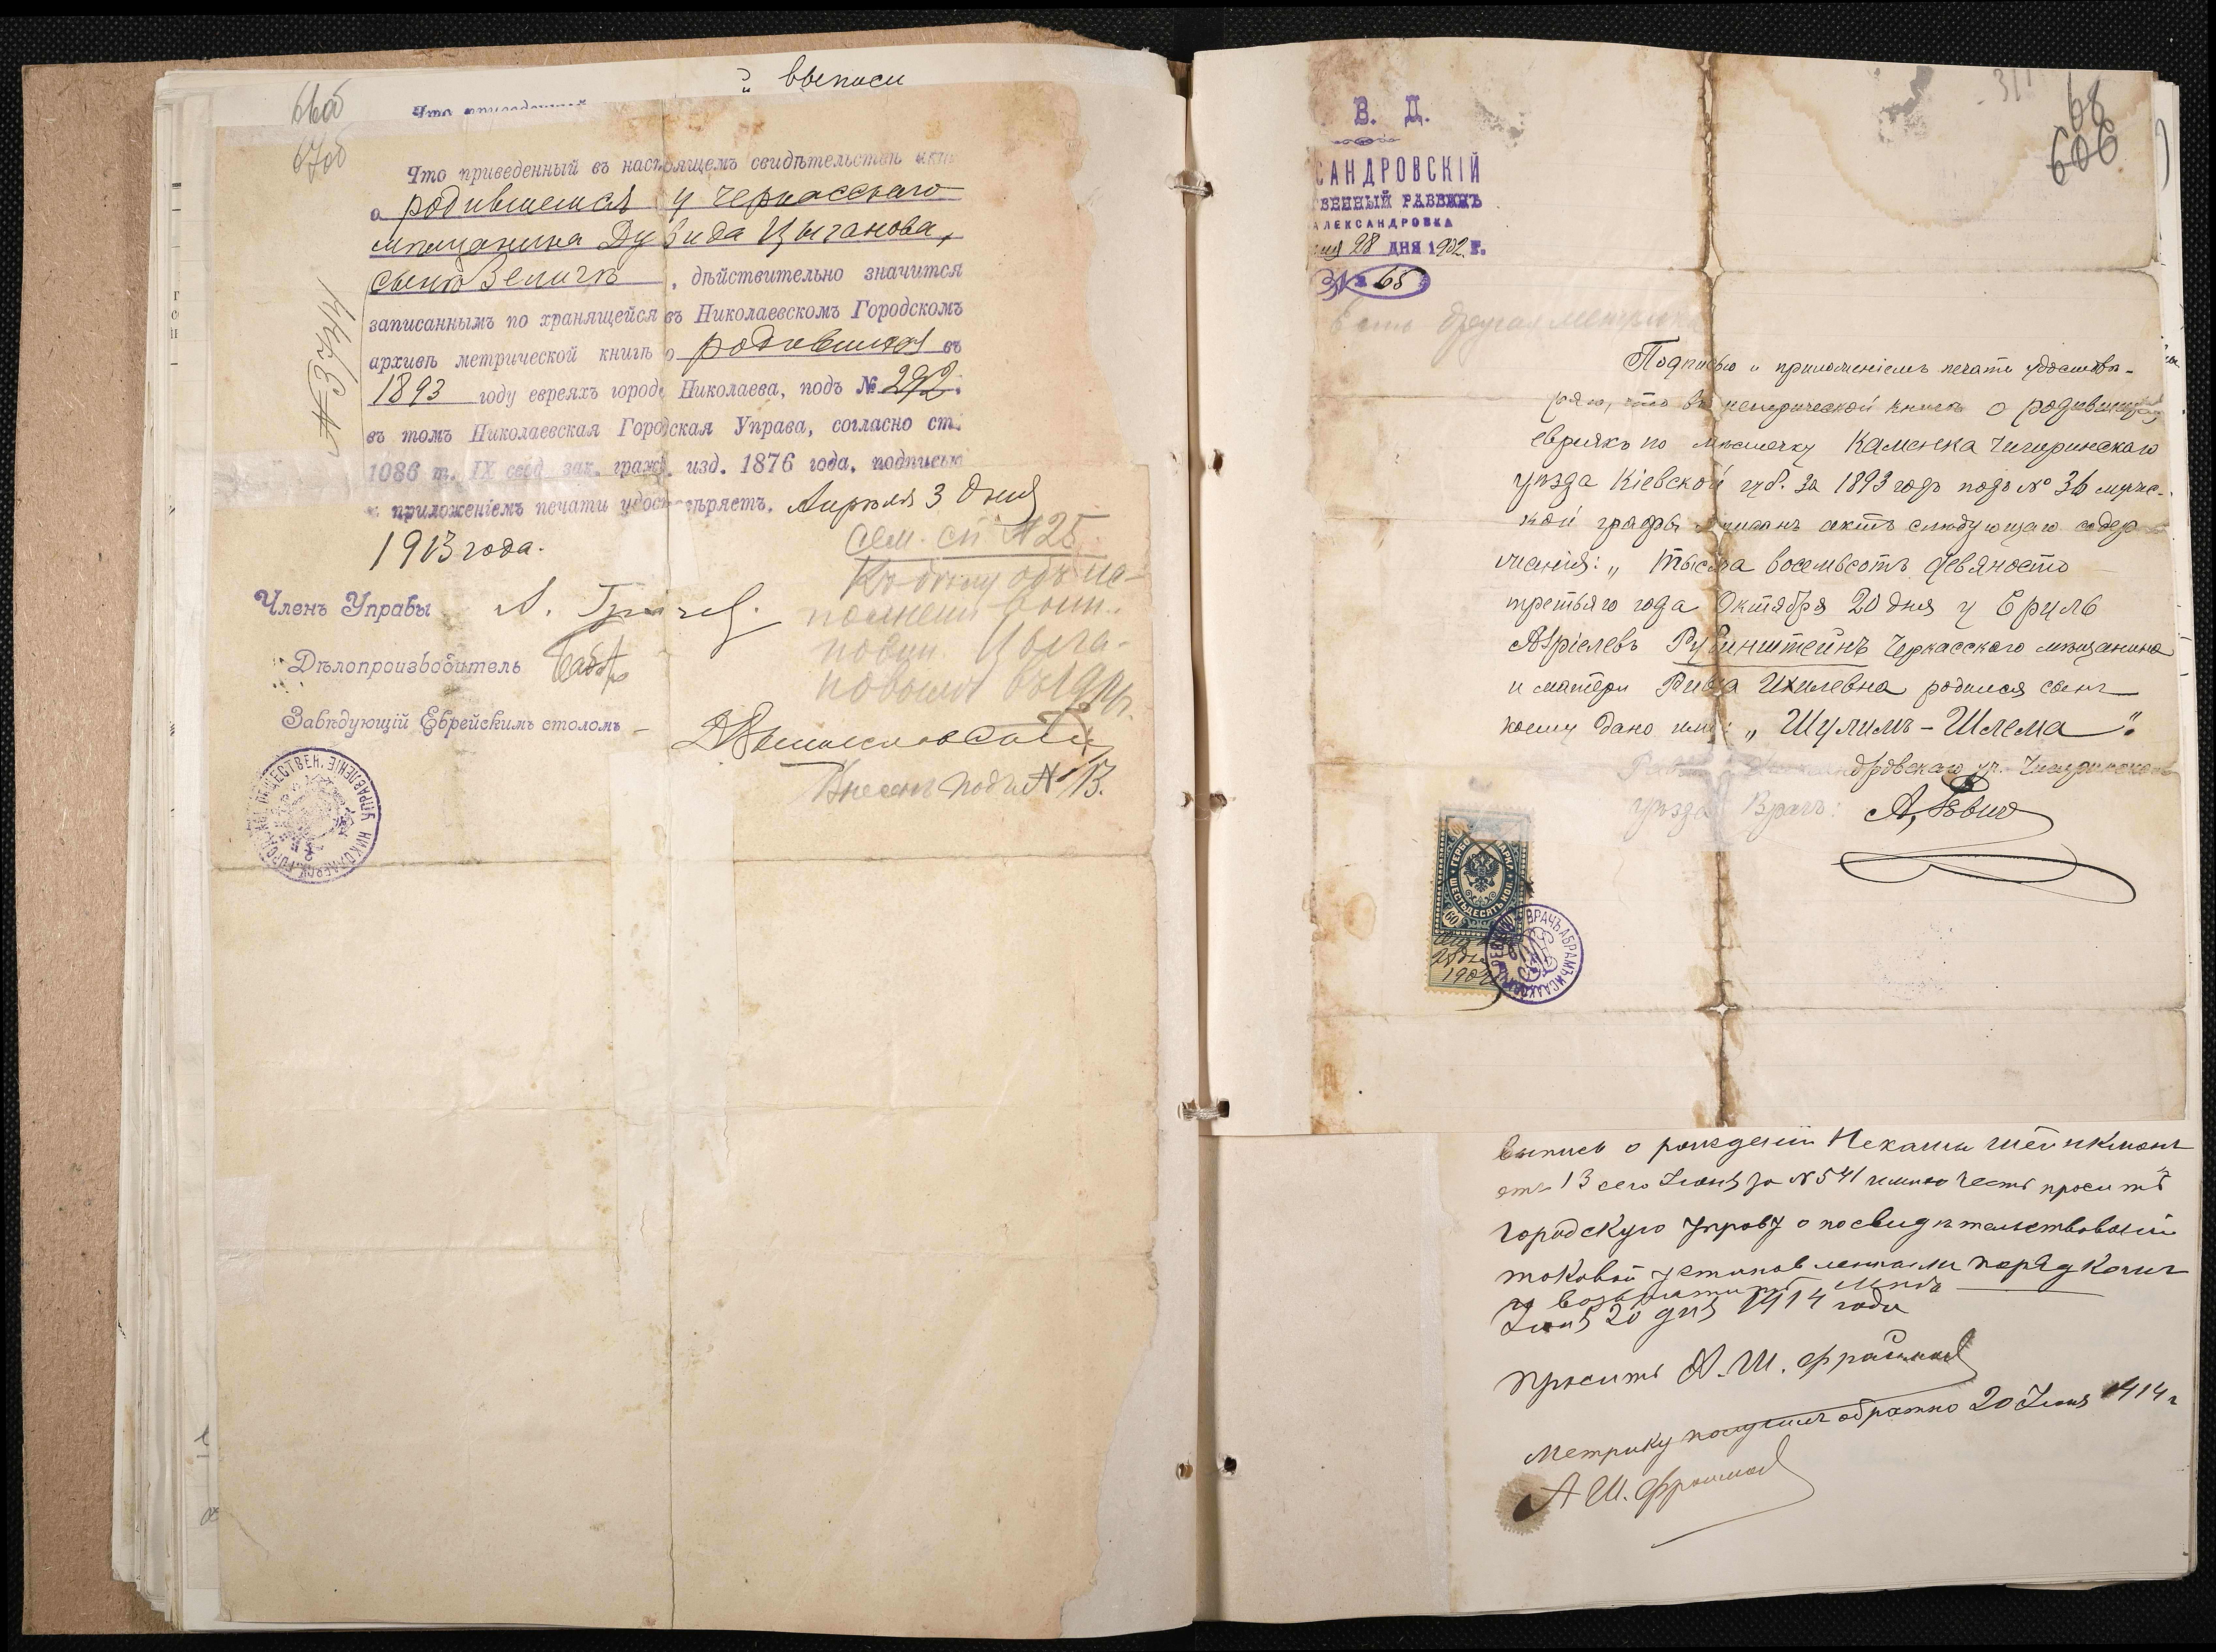 выписи
66об
67об
Что приведенный въ настоящемъ свидѣтельствѣ актъ
о родившемся у черкасскаго
мѣщанина Дувида Цыганова,
сынѣ Зеликѣ, дѣйствительно значится
записаннымъ по хранящейся въ Николаевскомъ Городскомъ
архивѣ метрической книгѣ о родившихся въ
1893 году евреяхъ города Николаева, подъ № 292.
въ томъ Николаевская Городская Управа, согласно ст.
1086 т. IX свод. зак. гражд. изд. 1876 года, подписью
и приложеніемъ печати удостовѣряетъ. Апрѣля 3 дня
1913 года.
№ 3744
Членъ Управы
Дѣлопроизводитель
Завѣдующій Еврейскимъ столомъ
сем. сп. № 25
Внесенъ подъ № 13.
В. Д.
САНДРОВСКІЙ
ВЕННЫЙ РАВВИНЪ
АЛЕКСАНДРОВКА
28 ДНЯ 1902 Г.
№ 65
68
606
Есть другая метрика
Подписью и приложеніемъ печати удостовѣ-
ряю, что въ метрической книгѣ о родившихся
евреяхъ по мѣстечку Каменка Чигиринскаго
уѣзда Кіевской губ. за 1893 годъ подъ № 36 мужс-
кой графы записанъ актъ слѣдующаго содер
жанія: „Тысяча восемьсотъ девяносто
третьяго года Октября 20 дня у Еруль
Азріелевъ Рубинштейнъ Черкасскаго мѣщанина
и матери Рива Ихилевна родился сынъ
коему дано имя: „Шулимъ-Шлема".
Чигиринскаго
уѣзда Врачъ:
ГЕРБО МАРКА
ШЕСТЬДЕСЯТЪ КОП.
60
28 дня
1902
ВРАЧЪ АБРАМЪ ИСААКОВИЧЪ
выпись о рожденіи Нехамы Штейнкманъ
отъ 13 сего Іюня за № 541 имѣю честь проситъ
городскую управу о посвидѣтельствованіи
таковой установленнымъ порядкомъ
и возвратить мнѣ
Іюня 20 дня 1914 года
Проситъ А. Ш. Фрайман
Метрику получилъ обратно 20 Іюня 1914 г
А Ш. Фрайман